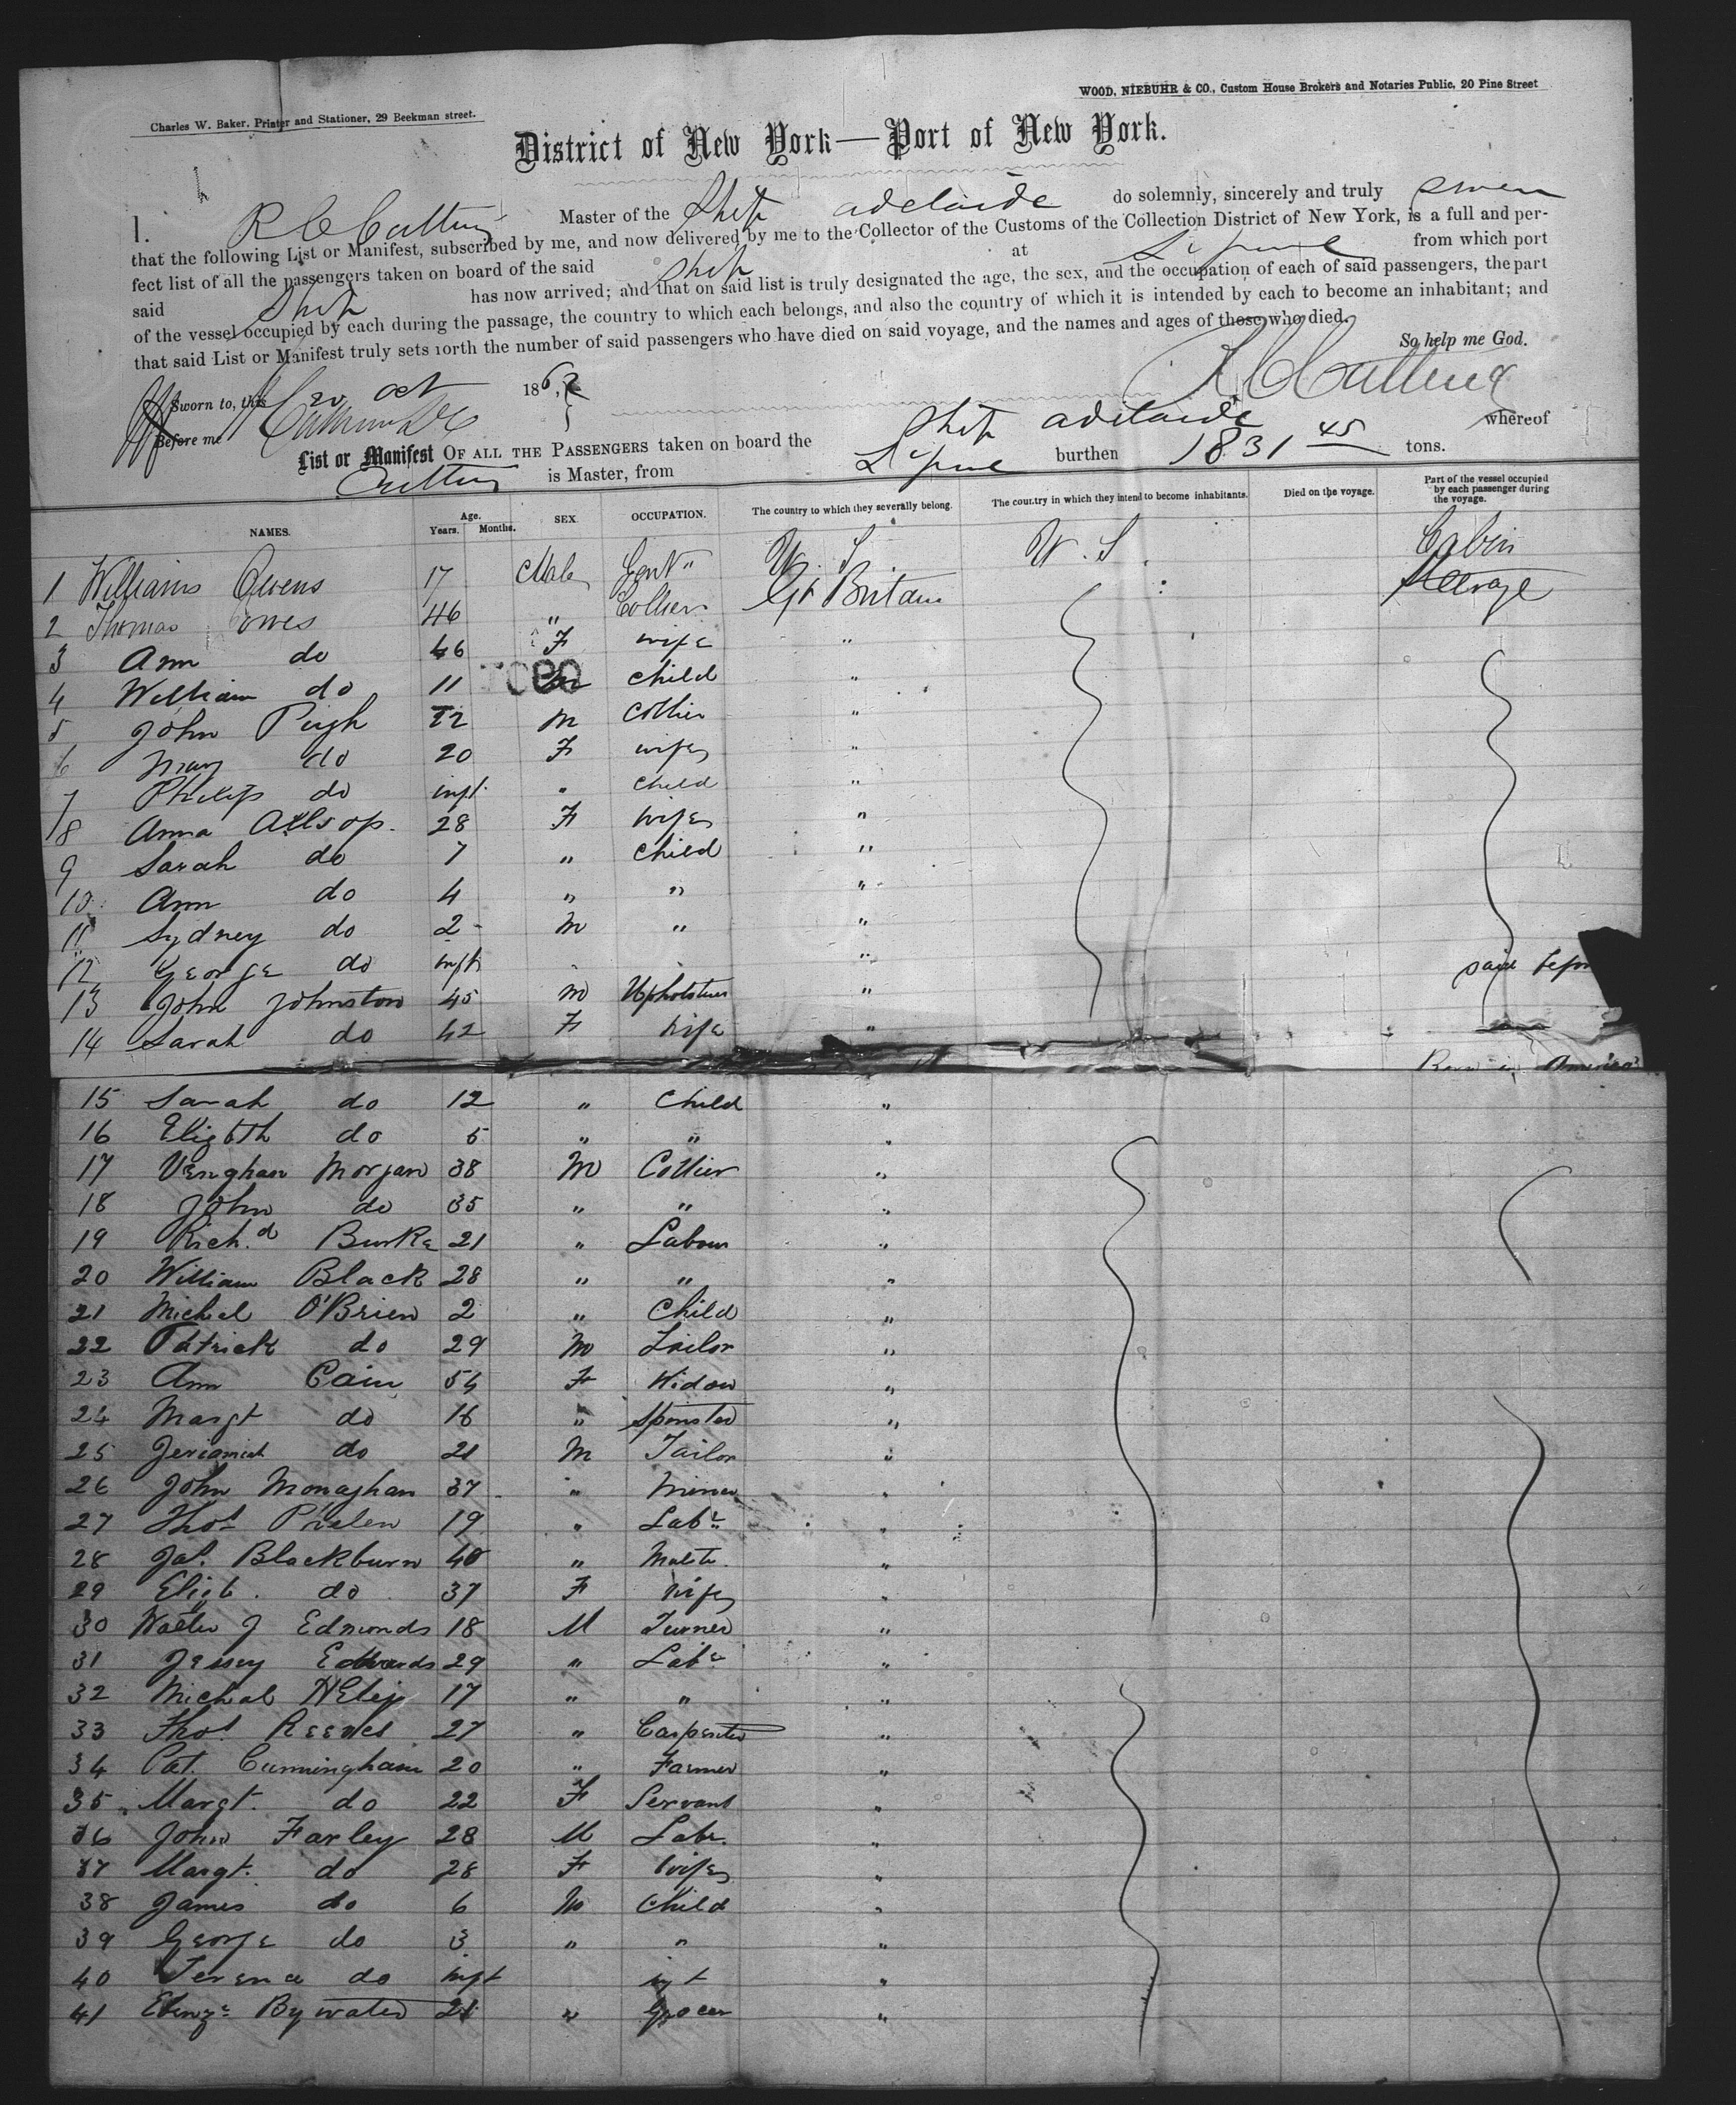 WOOD, NIEBUHR & CO., Custom House Brokers and Notaries Public, 20 Pine Street
Charles W. Baker, Printer and Stationer, 29 Beekman street.
District of New York—Port of New York.
I, R C Cutting Master of the Ship adelaide do solemnly, sincerely and truly swear
that the following List or Manifest, subscribed by me, and now delivered by me to the Collector of the Customs of the Collection District of New York, is a full and per-
fect list of all the passengers taken on board of the said Ship at L'pool from which port
said Ship has now arrived; and that on said list is truly designated the age, the sex, and the occupation of each of said passengers, the part
of the vessel occupied by each during the passage, the country to which each belongs, and also the country of which it is intended by each to become an inhabitant; and
that said List or Manifest truly sets forth the number of said passengers who have died on said voyage, and the names and ages of those who died.
So help me God.
Sworn to, this 20 Oct 186
R C Cutting
Before me
List or Manifest OF ALL THE PASSENGERS taken on board the Ship adelaide whereof
Cutting is Master, from L'pool burthen 1831 45 tons.
NAMES. Age. Years. Months. SEX. OCCUPATION. The country to which they severally belong. The country in which they intend to become inhabitants. Died on the voyage. Part of the vessel occupied by each passenger during the voyage.
1 Williams Owens 17 Male Gent" U. S. U. S. Cabin
2 Thomas 46 " Collier Gt Britain Steerage
3 Ann do 46 F wife "
4 William do 11 child "
5 John Pugh 22 M Collier "
6 Mary do 20 F wife "
7 Philip do inft " child "
8 Anna Allsop. 28 F wife "
9 Sarah do 7 " child "
10 Ann do 4 " " "
11 Sydney do 2 M " "
12 George do inft "
said befor
13 John Johnston 45 M Upholsterer "
14 Sarah do 42 F wife "
Born in America
15 Sarah do 12 " Child "
16 Elizbth do 5 " " "
17 Venghan Morgan 38 M Collier "
18 John do 35 " " "
19 Richd Burke 21 " Labour "
20 William Black 28 " " "
21 Michel O'Brien 2 " Child "
22 Patrick do 29 M Tailor "
23 Ann Cain 54 F Widow "
24 Margt do 16 " Spinster "
25 Jeriamiah do 21 M Tailor "
26 John Monaghan 37 " Miner "
27 Thos Phelen 19 " Labr "
28 Jas. Blackburn 40 " "
29 Elizb. do 37 F Wife "
30 Walter J Edmonds 18 M Turner "
31 Jessey Edwards 29 " Labr "
32 Michal 17 " " "
33 Thos Reeves 27 " Carpenter "
34 Pat. Cunningham 20 " Farmer "
35 Margt. do 22 F Servant "
36 John Farley 28 M Labr. "
37 Margt. do 28 F Wife "
38 James do 6 M Child "
39 George do 3 " " "
40 Terence do inft inft "
41 Ebenzr Bywater 21 " Grocer "